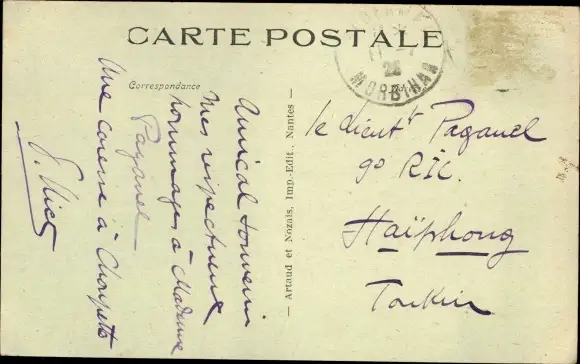 CARTE POSTALE
Correspondance
MORBIHAN
26
Amical souvenir
Mes respectueux
hommages à Madame
Paganel
Une caresse à
— Artaud et Nozais, Imp.-Edit., Nantes —
le Lieutt Paganel
9e RIC.
Haïphong
Tonkin